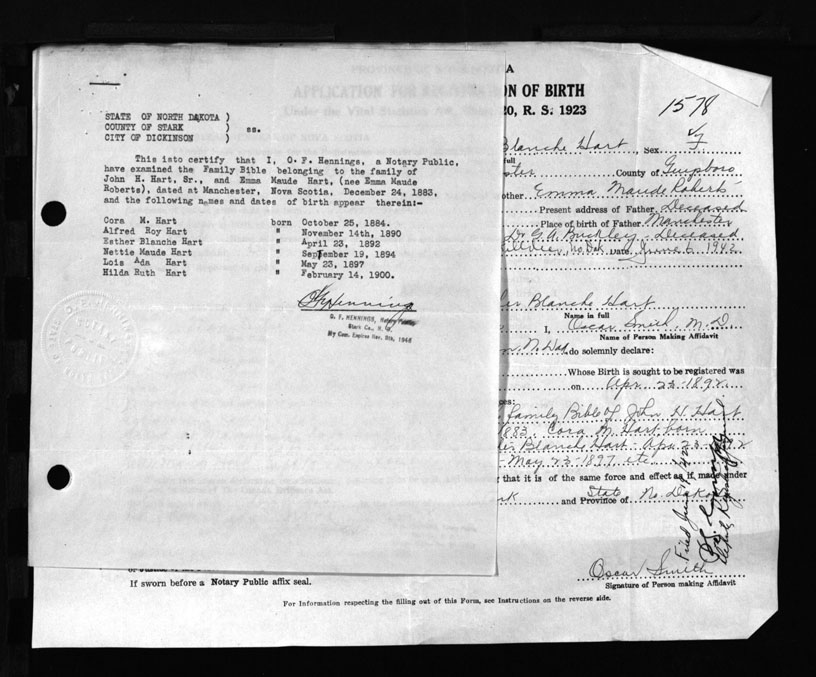 STATE OF NORTH DAKOTA )
COUNTY OF STARK ) ss.
CITY OF DICKINSON )
This isto certify that I, O. F. Hennings, a Notary Public,
have examined the Family Bible belonging to the family of
John H. Hart, Sr., and Emma Maude Hart, (nee Emma Maude
Roberts), dated at Manchester, Nova Scotia, December 24, 1883,
and the following names and dates of birth appear therein:-
Cora M. Hart born October 25, 1884.
Alfred Roy Hart " November 14th, 1890
Esther Blanche Hart " April 23, 1892
Nettie Maude Hart " September 19, 1894
Lois Ada Hart " May 23, 1897
Hilda Ruth Hart " February 14, 1900.
O F Hennings
O. F. HENNINGS, Notary Public
Stark Co., N. D.
My Com. Expires Nov. 8th, 1948
A
ON OF BIRTH
20, R. S. 1923
1578
Blanche Hart, Sex F
full
County of Guysboro
other Emma Maude Roberts
Present address of Father, Deceased
Place of birth of Father, Manchester
Dr G. A. Buckley - Deceased
No Dak. Date, June 6 1942
Blanche Hart
Name in full
I, Oscar Smith, M. D.
Name of Person Making Affidavit
N. Dak, do solemnly declare:
Whose Birth is sought to be registered was
on Apr. 23 - 1892
family Bible of John H. Hart
1883. Cora M. Hart born
Blanch Hart - Apr. 23 - 1892
- May 23 1897 etc.
that it is of the same force and effect as if made under
and State Province of No. Dakota
Filed June
Oscar Smith
Signature of Person making Affidavit
If sworn before a Notary Public affix seal.
For Information respecting the filling out of this Form, see Instructions on the reverse side.